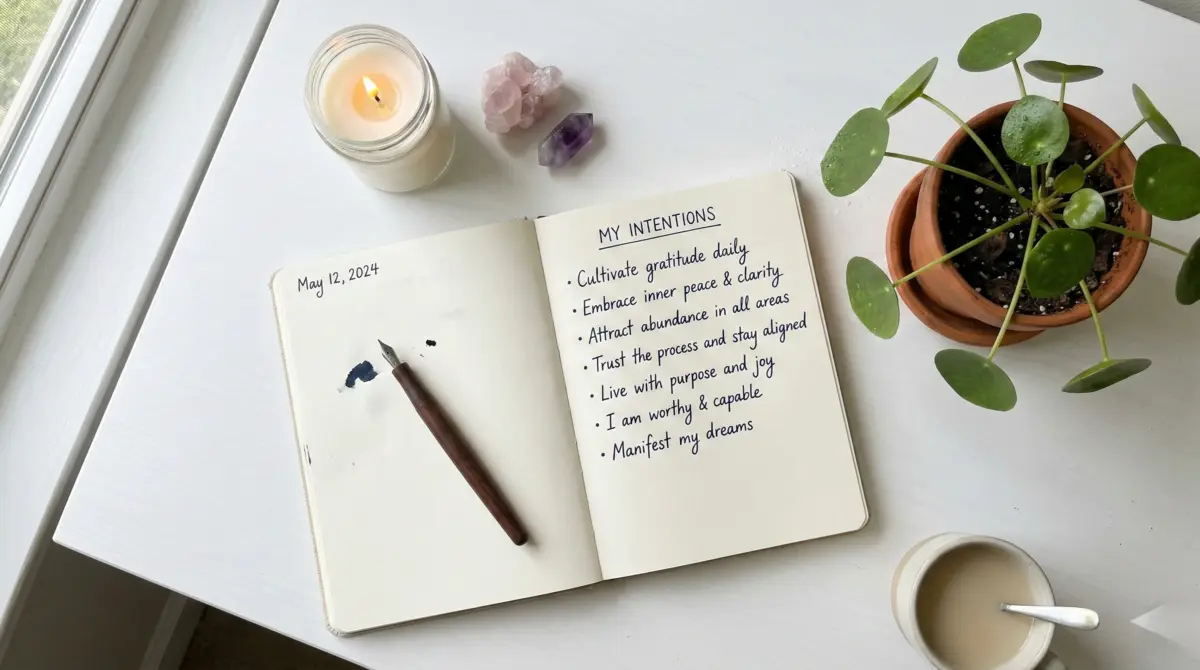 May 12, 2024
MY INTENTIONS
• Cultivate gratitude daily
• Embrace inner peace & clarity
• Attract abundance in all areas
• Trust the process and stay aligned
• Live with purpose and joy
• I am worthy & capable
• Manifest my dreams